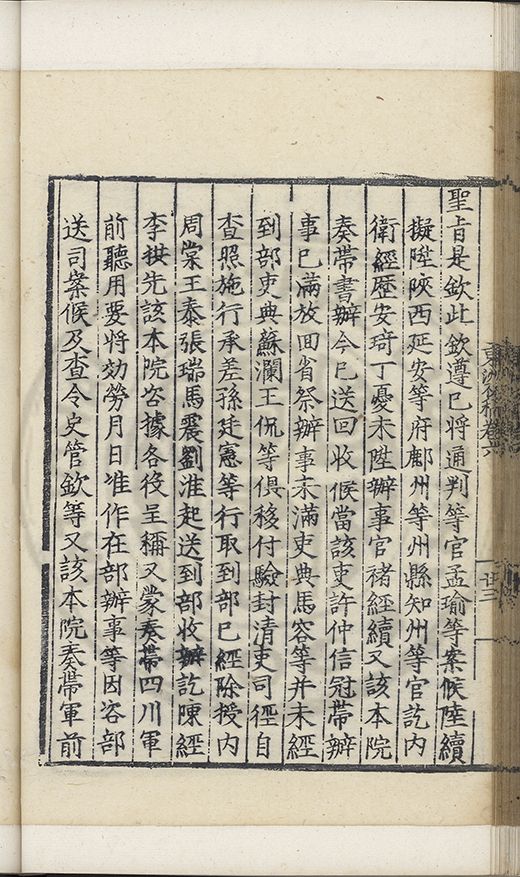 聖旨是欽此欽遵已將通判等官孟瑜等案候陸續
擬陞陝西延安等府鄜州等州縣知州等官訖內
衛經歷安琦丁憂未陞辦事官褚經續又該本院
奏帶書辦今已送回收候當該吏許仲信冠帶辦
事已滿放回省祭辦事未滿吏典馬容等并未經
到部吏典蘇瀾王侃等俱移付驗封清吏司徑自
查照施行承差孫廷憲等行取到部已經除授內
周棠王泰張瑞馬震劉淮起送到部收辦訖陳經
李先該本院咨據各役呈稱又蒙奏帶四川軍
前聽用要將効勞月日准作在部辦事等因咨部
送司案候及查令史管欽等又該本院奏帶軍前
卷六
廿三